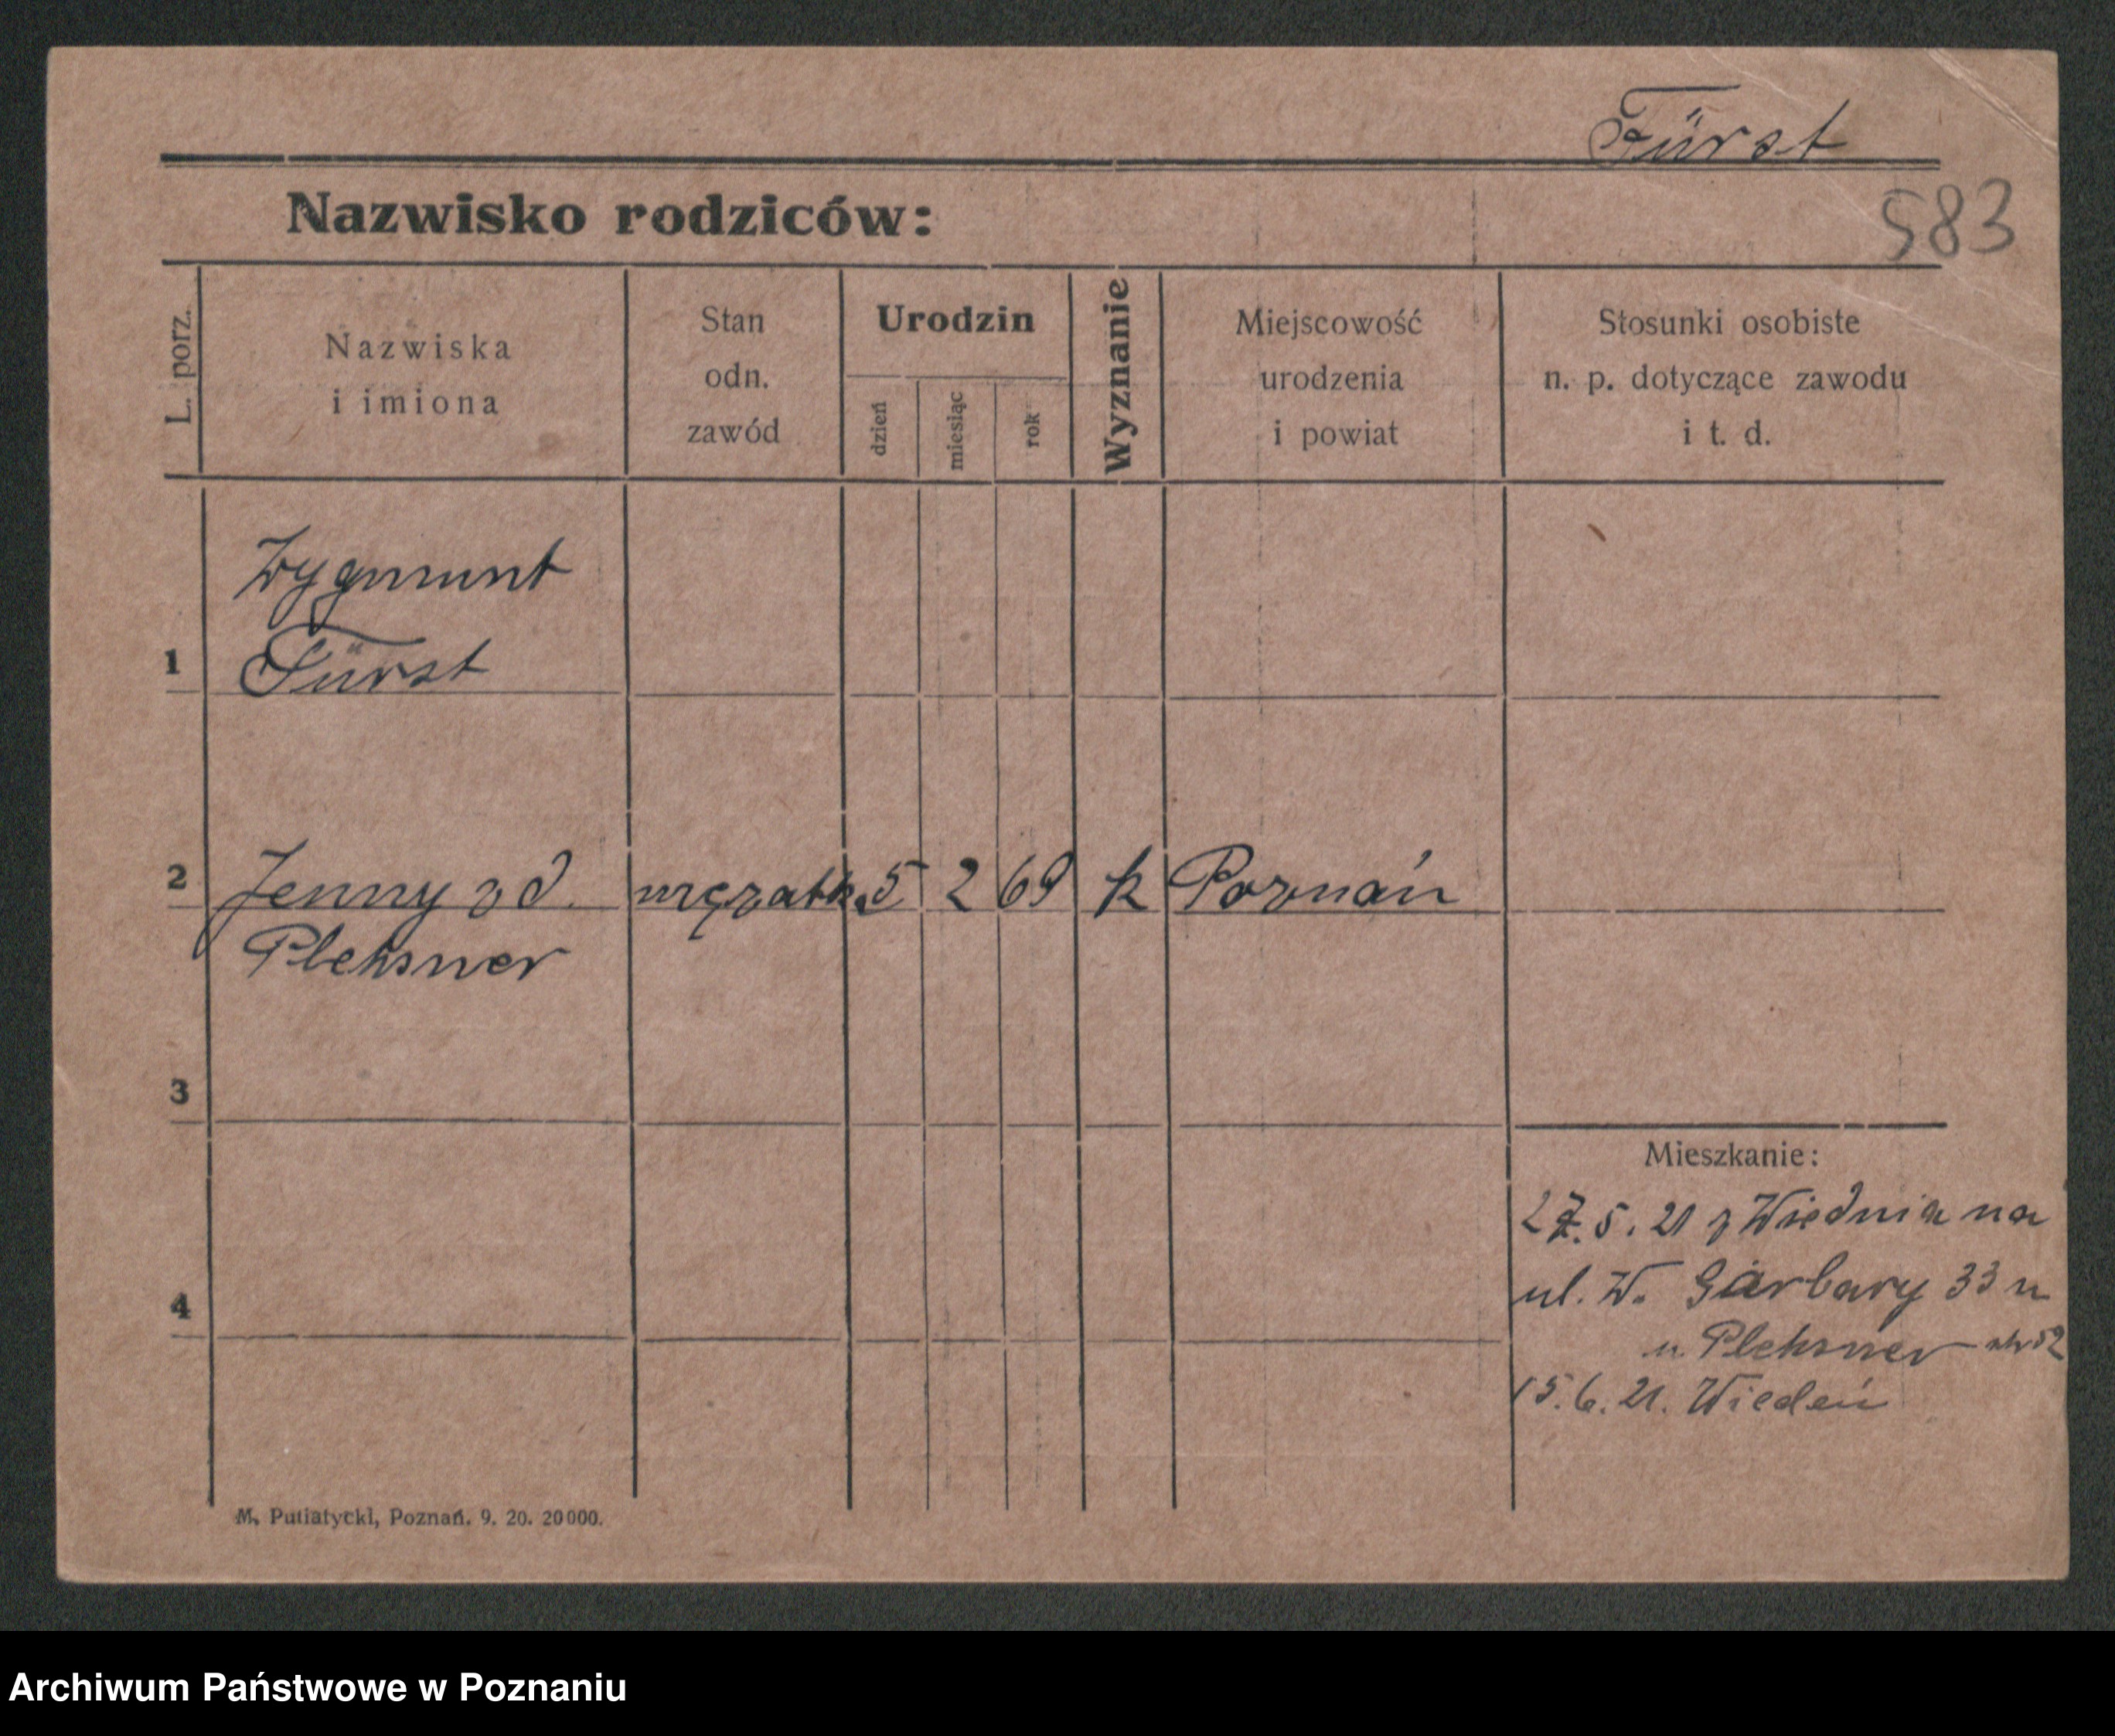 Fürst
Nazwisko rodziców:
583
L. porz.
Nazwiska
i imiona
Stan
odn.
zawód
Urodzin
dzień
miesiąc
rok
Wyznanie
Miejscowość
urodzenia
i powiat
Stosunki osobiste
n. p. dotyczące zawodu
i t. d.
Zygmunt
1 Fürst
2 Jenny zd. mężatka 5 2 69 k Poznań
Pleksner
3
Mieszkanie:
27.5.21 z Wiednia na
ul. W. Garbary 33 u
4
u Pleksner
15.6.21. Wiedeń
M. Putiatycki, Poznań. 9. 20. 20000.
Archiwum Państwowe w Poznaniu